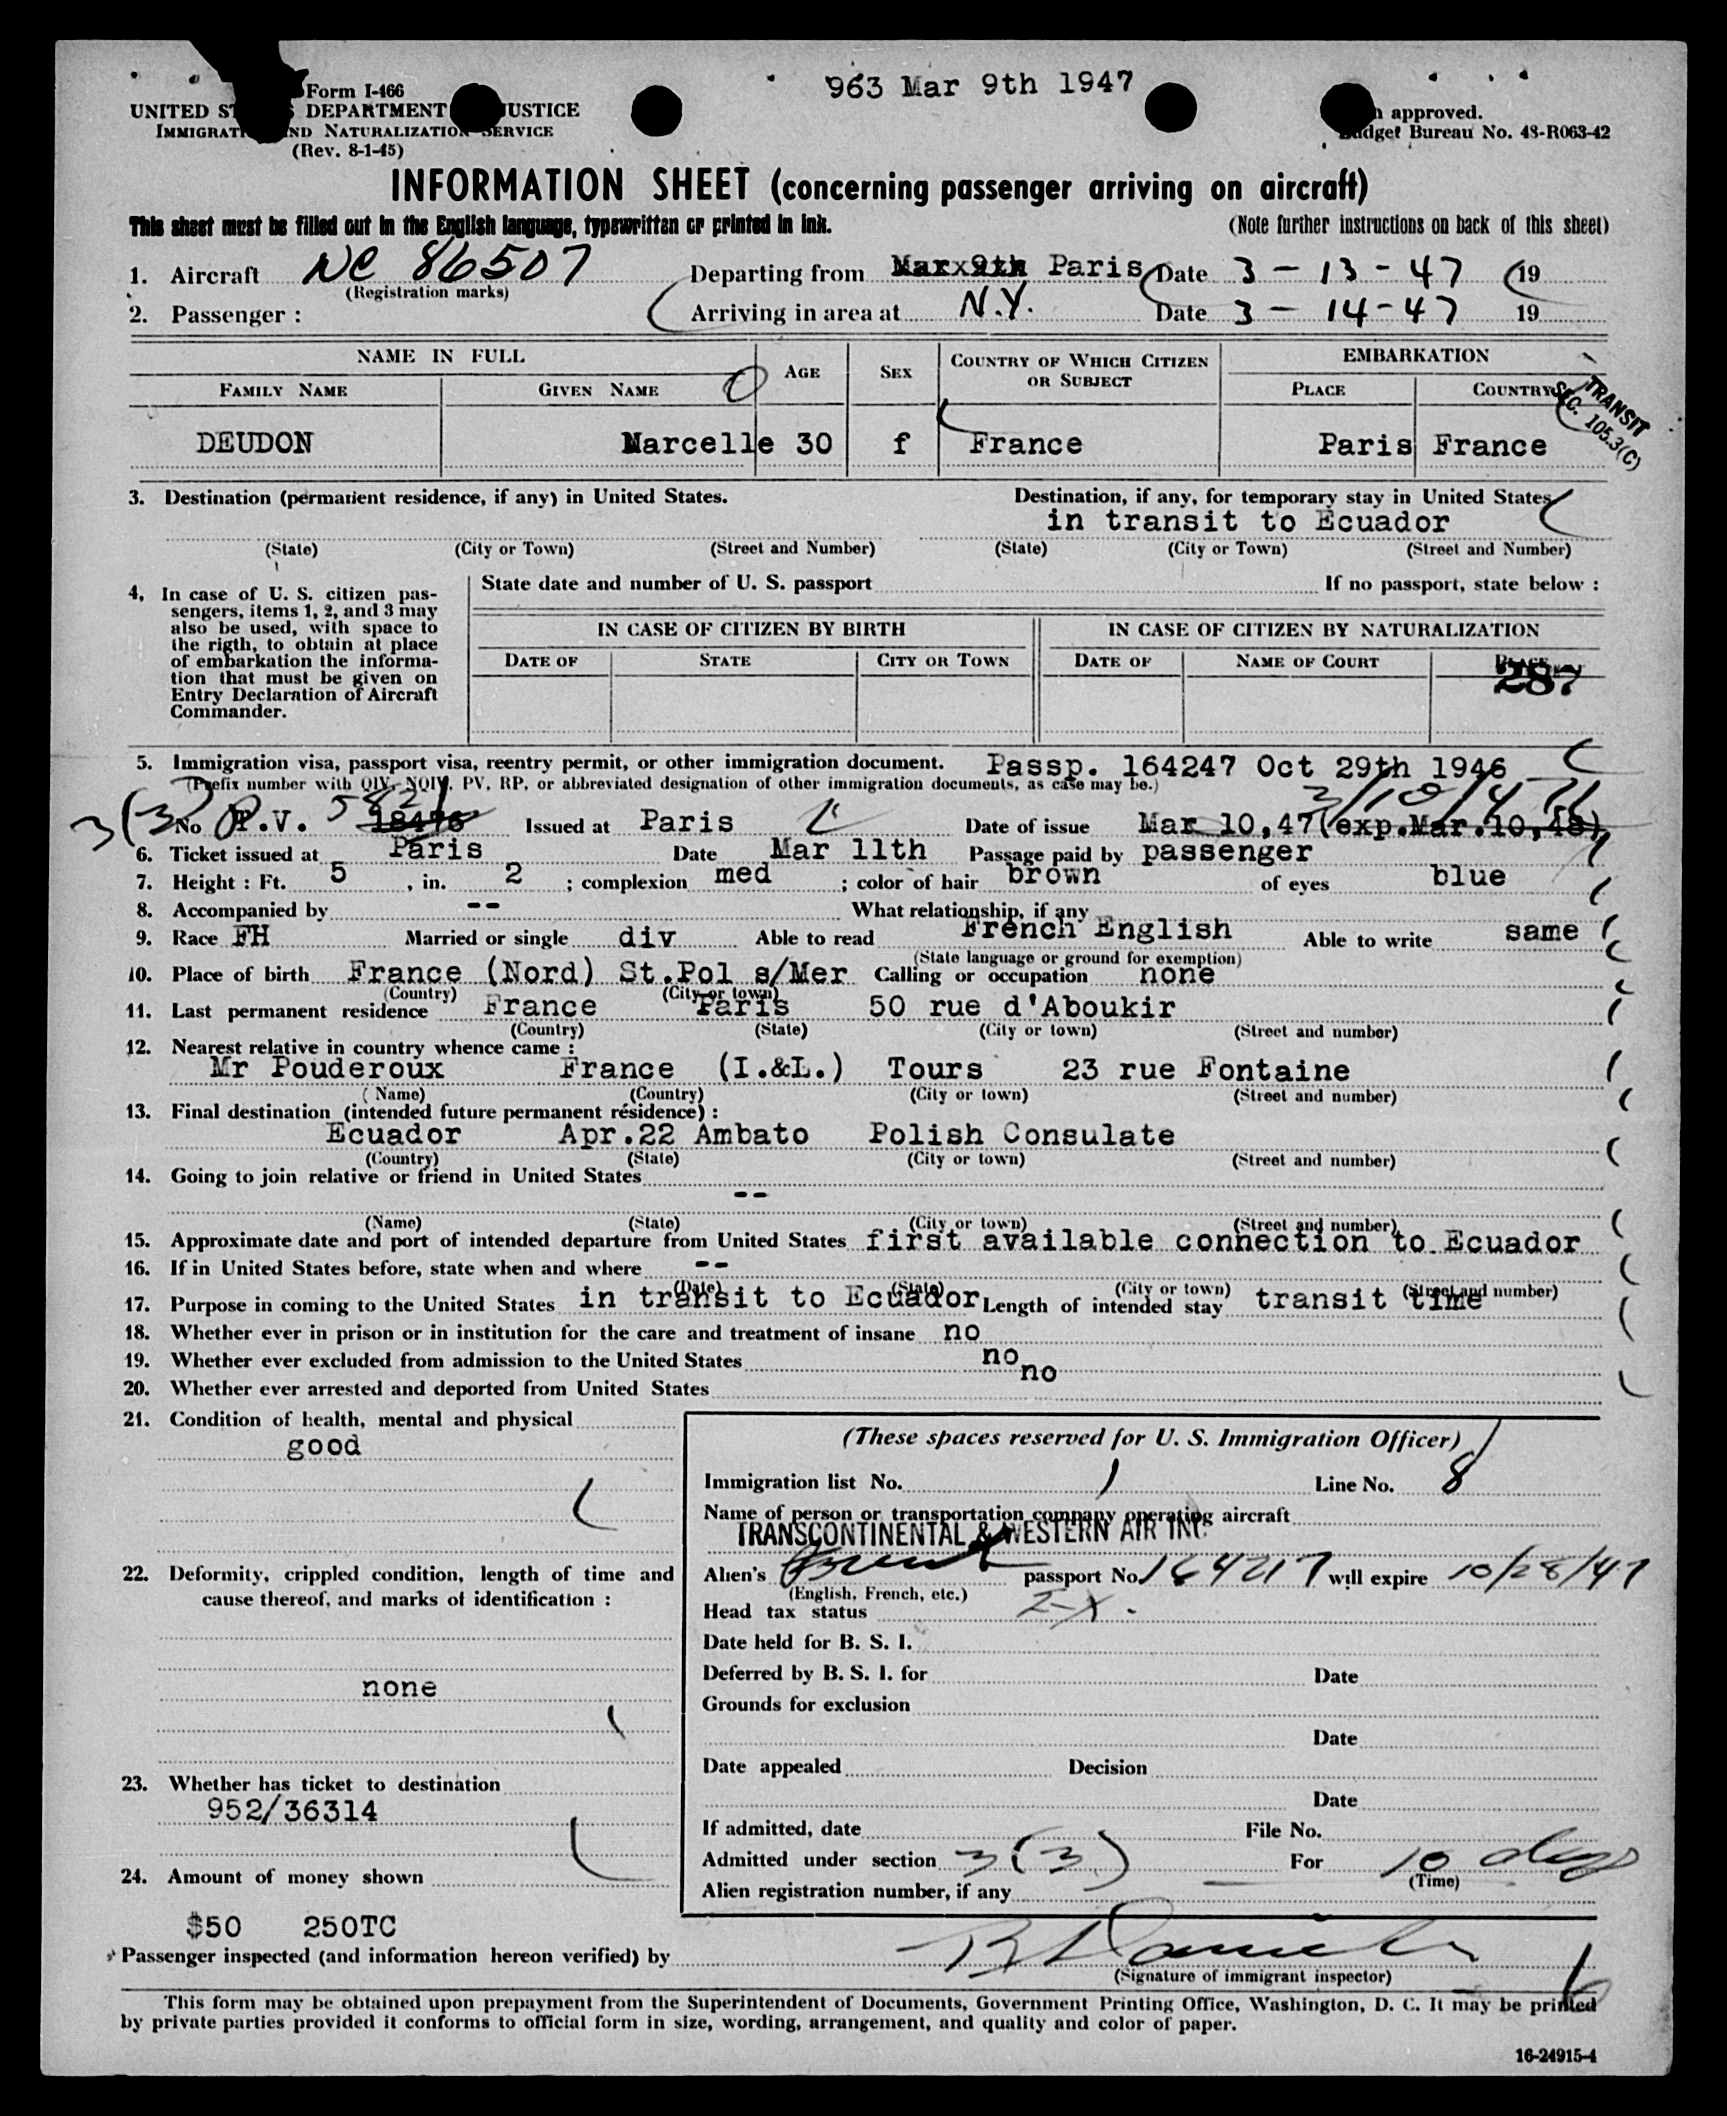 963 Mar 9th 1947
Form I-466
UNITED ST S DEPARTMENT JUSTICE
IMMIGRATI ND NATURALIZATION SERVICE
(Rev. 8-1-45)
approved.
Budget Bureau No. 43-R063-42
INFORMATION SHEET (concerning passenger arriving on aircraft)
This sheet must be filled out in the English language, typewritten or printed in ink. (Note further instructions on back of this sheet)
1. Aircraft NC 86507 Departing from Paris Date 3-13-47 19
(Registration marks)
2. Passenger : Arriving in area at N.Y. Date 3-14-47 19
NAME IN FULL AGE SEX COUNTRY OF WHICH CITIZEN OR SUBJECT EMBARKATION
FAMILY NAME GIVEN NAME PLACE COUNTRY
TRANSIT
SEC. 105.3(C)
DEUDON Marcelle 30 f France Paris France
3. Destination (permanent residence, if any) in United States. Destination, if any, for temporary stay in United States
in transit to Ecuador
(State) (City or Town) (Street and Number) (State) (City or Town) (Street and Number)
4. In case of U. S. citizen pas-
sengers, items 1, 2, and 3 may
also be used, with space to
the rigth, to obtain at place
of embarkation the informa-
tion that must be given on
Entry Declaration of Aircraft
Commander.
State date and number of U. S. passport If no passport, state below :
IN CASE OF CITIZEN BY BIRTH IN CASE OF CITIZEN BY NATURALIZATION
DATE OF STATE CITY OR TOWN DATE OF NAME OF COURT PLACE
287
5. Immigration visa, passport visa, reentry permit, or other immigration document. Passp. 164247 Oct 29th 1946
(Prefix number with QIV, NQIV, PV, RP, or abbreviated designation of other immigration documents, as case may be.)
3(3) No P.V. 18476 5821 Issued at Paris Date of issue Mar 10,47(exp.Mar.10,48) 3/10/47
6. Ticket issued at Paris Date Mar 11th Passage paid by passenger
7. Height : Ft. 5 , in. 2 ; complexion med ; color of hair brown of eyes blue
8. Accompanied by -- What relationship, if any
9. Race FH Married or single div Able to read French English Able to write same
(State language or ground for exemption)
10. Place of birth France (Nord) St.Pol s/Mer Calling or occupation none
(Country) (City or town)
11. Last permanent residence France Paris 50 rue d'Aboukir
(Country) (State) (City or town) (Street and number)
12. Nearest relative in country whence came :
Mr Pouderoux France (I.&L.) Tours 23 rue Fontaine
(Name) (Country) (City or town) (Street and number)
13. Final destination (intended future permanent résidence) :
Ecuador Apr.22 Ambato Polish Consulate
(Country) (State) (City or town) (Street and number)
14. Going to join relative or friend in United States
--
(Name) (State) (City or town) (Street and number)
15. Approximate date and port of intended departure from United States first available connection to Ecuador
16. If in United States before, state when and where --
(Date) (State) (City or town) (Street and number)
17. Purpose in coming to the United States in transit to Ecuador Length of intended stay transit time
18. Whether ever in prison or in institution for the care and treatment of insane no
19. Whether ever excluded from admission to the United States no
20. Whether ever arrested and deported from United States no
21. Condition of health, mental and physical
good
22. Deformity, crippled condition, length of time and
cause thereof, and marks of identification :
none
23. Whether has ticket to destination
952/36314
24. Amount of money shown
$50 250TC
(These spaces reserved for U. S. Immigration Officer)
Immigration list No. 1 Line No. 8
Name of person or transportation company operating aircraft
TRANSCONTINENTAL & WESTERN AIR INC.
Alien's French passport No. 164217 will expire 10/28/47
(English, French, etc.)
Head tax status
Date held for B. S. I.
Deferred by B. S. I. for Date
Grounds for exclusion
Date
Date appealed Decision
Date
If admitted, date File No.
Admitted under section 3(3) For 10 days
(Time)
Alien registration number, if any
Passenger inspected (and information hereon verified) by
(Signature of immigrant inspector)
This form may be obtained upon prepayment from the Superintendent of Documents, Government Printing Office, Washington, D. C. It may be printed
by private parties provided it conforms to official form in size, wording, arrangement, and quality and color of paper.
16-24915-4